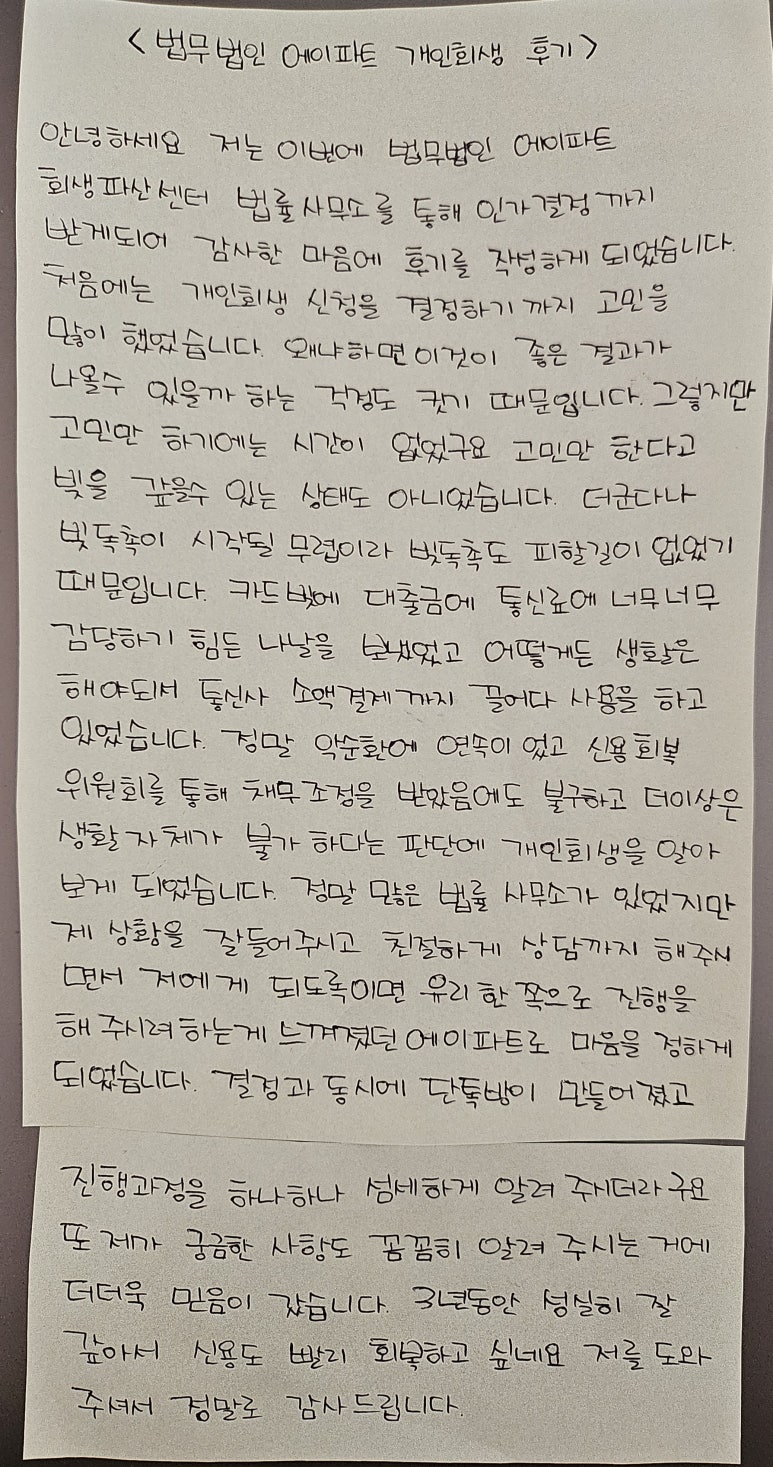 <법무법인 에이파트 개인회생 후기>
안녕하세요 저는 이번에 법무법인 에이파트
회생파산센터 법률사무소를 통해 인가결정까지
받게되어 감사한 마음에 후기를 작성하게 되었습니다.
처음에는 개인회생 신청을 결정하기까지 고민을
많이 했었습니다. 왜냐하면이것이 좋은 결과가
나올수 있을까 하는 걱정도 컸기 때문입니다. 그렇지만
고민만 하기에는 시간이 없었구요 고민만 한다고
빚을 갚을수 있는 상태도 아니었습니다. 더군다나
빚독촉이 시작될 무렵이라 빚독촉도 피할길이 없었기
때문입니다. 카드빚에 대출금에 통신료에 너무너무
감당하기 힘든 나날을 보냈었고 어떻게든 생활은
해야되서 통신사 소액결제까지 끌어다 사용을 하고
있었습니다. 정말 악순환에 연속이었고 신용회복
위원회를 통해 채무조정을 받았음에도 불구하고 더이상은
생활자체가 불가하다는 판단에 개인회생을 알아
보게 되었습니다. 정말 많은 법률 사무소가 있었지만
제 상황을 잘들어주시고 친절하게 상담까지 해주시
면서 저에게 되도록이면 유리한쪽으로 진행을
해 주시려하는게 느껴졌던 에이파트로 마음을 정하게
되었습니다. 결정과 동시에 단톡방이 만들어졌고
진행과정을 하나하나 섬세하게 알려 주시더라구요
또 제가 궁금한 사항도 꼼꼼히 알려 주시는 거에
더더욱 믿음이 갔습니다. 3년동안 성실히 잘
갚아서 신용도 빨리 회복하고 싶네요 저를 도와
주셔서 정말로 감사드립니다.